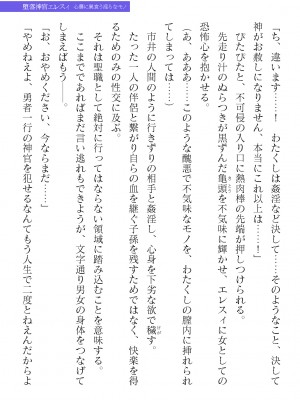 堕落神官エレスィ 心髄に無垢で淫らなモノ
「ち、違います……！　わたくしは姦淫など決して……、そのようなこと、決して
神がお赦しになりません、本当にこれ以上は……！」
ぴたぴたと、不可侵の入り口に熱肉棒の先端が押しつけられる。
先走り汁のぬらつきが黒ずんだ亀頭を不気味に輝かせ、エレスィに女としての
恐怖心を煽る。
「あ、ああ、あ……このような醜悪で不気味なモノを、わたくしの膣内に挿れられ
てしまっては……」
市井の人間のように行きずりの相手と姦淫し、心身を下劣な欲で穢す。
たった一人の伴侶と繋がり自らの血を継ぐ子孫を残すためではなく、快楽を得
るためのみの性交に及ぶ。
それは聖職として絶対に行ってはならない領域に踏み込むことを意味する。
ここまでであればまだ言い逃れもできようが、文字通り男女の身体をつなげて
しまえばもう――。
「お、おやめください、今ならまだ……」
「やめねえよ、勇者一行の神官を犯せるなんてもう人生で二度とねえんだからよ